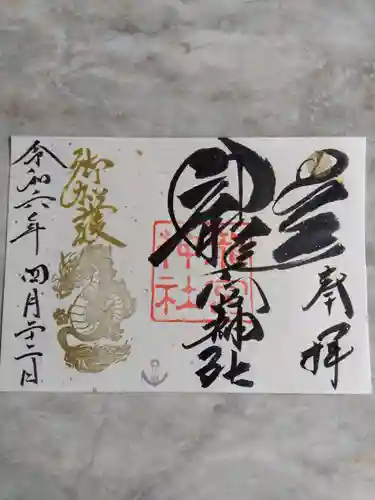 奉拝
龍宮神社
龍宮神社
御加護
令和六年 四月二十二日